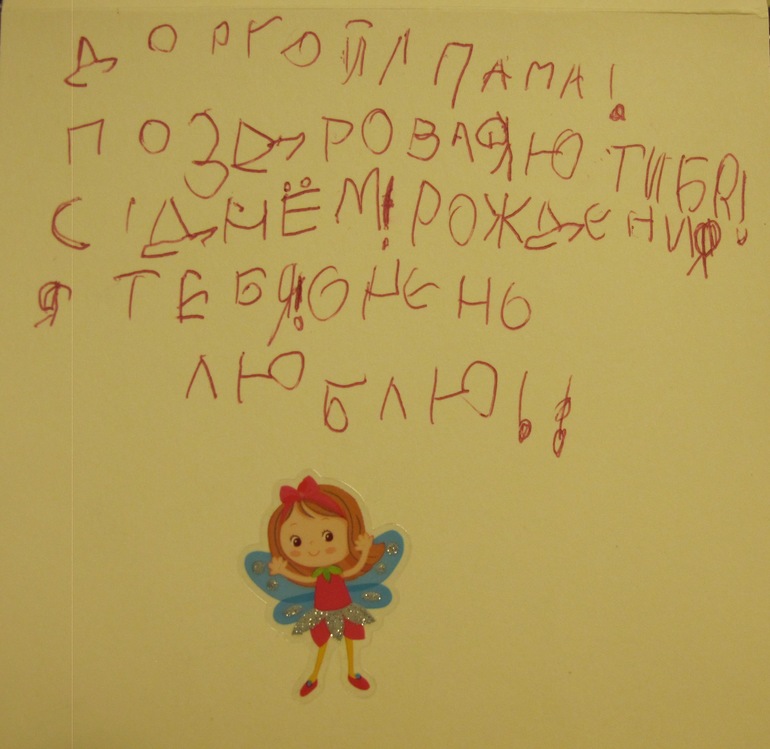 ДОРГОЙ ПАМА!
ПОЗДРОВАЯЮ ТИБЯ!
С ДНЁМ! РОЖДЕНИЯ!
Я ТЕБЯ! ОНЕНО
ЛЮБЛЮ!!